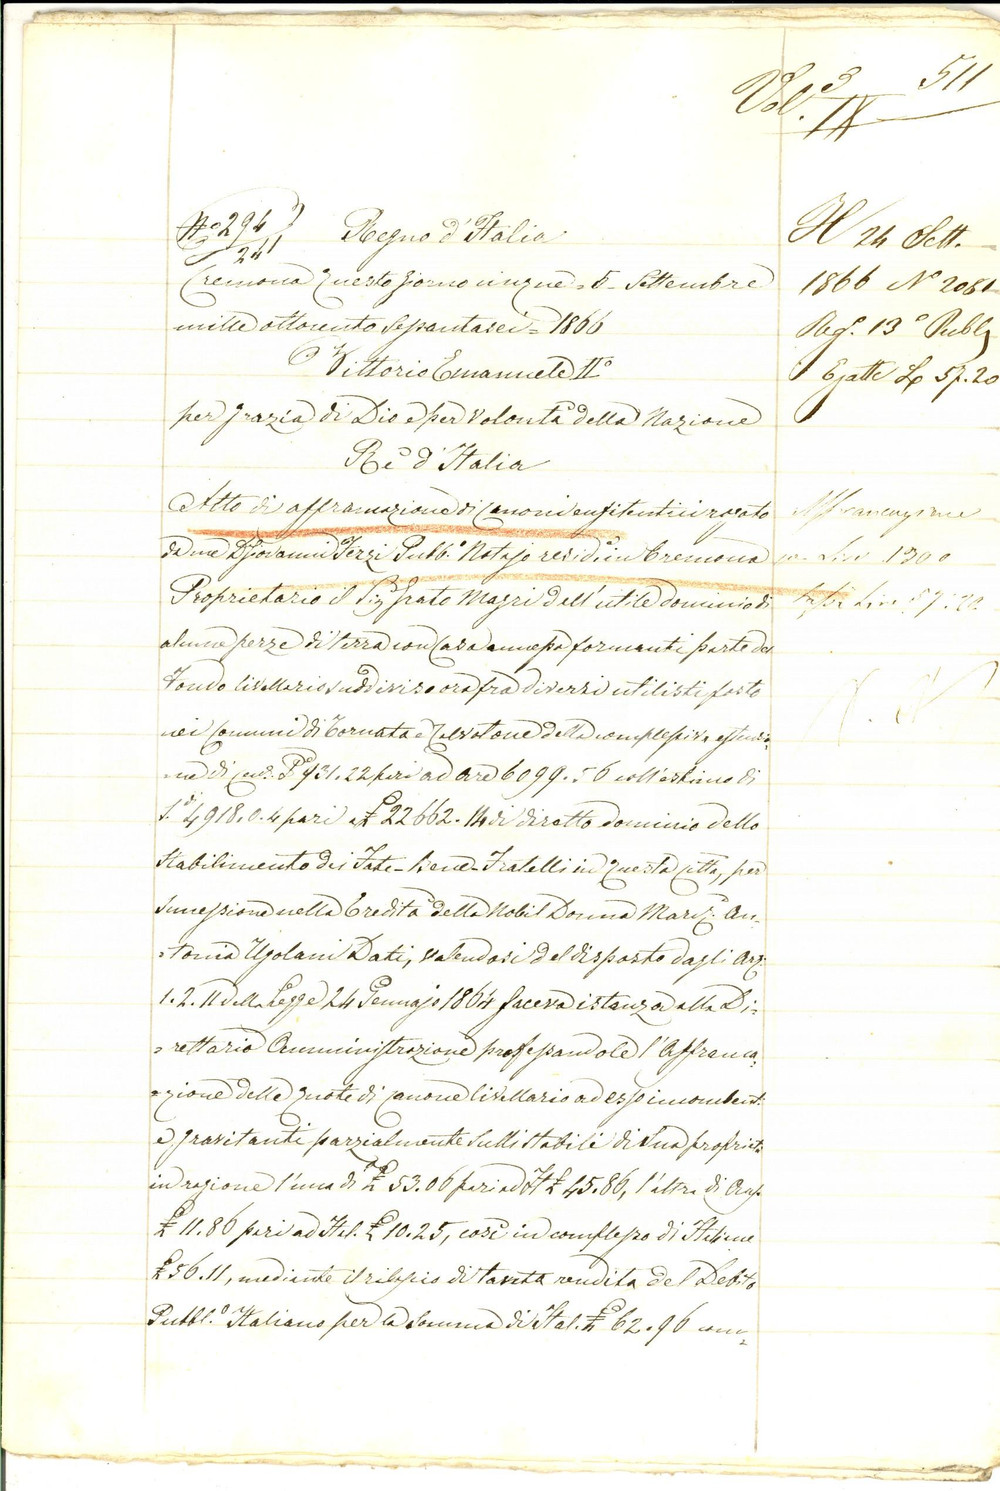 Vol. 3 511
IX
N.° 294
241
Regno d'Italia
Cremona questo giorno cinque = 5 = Settembre
mille ottocento sessantasei = 1866
Vittorio Emanuele II°
per grazia di Dio e per volontà della Nazione
Rè d'Italia
Atto di affrancazione di canoni enfiteutici rogato
da me D. Giovanni Terzi Pubb.° Notajo resid.e in Cremona
Proprietario il Sig. Grato Magri dell'utile dominio di
alcune pezze di terra con casa annessa formanti parte del
Fondo livellario suddiviso ora fra diversi utilisti posto
nei Comuni di Tornata e Calvatone della complessiva estensio
ne di cens. P. 931.22 pari ad are 6099.56 coll'estimo di
S. 4918.0.4 pari a £ 22662.14 di diretto dominio dello
Stabilimento dei Fate-bene-Fratelli in questa città, per
successione nella Eredità della Nobil Donna March. An-
tonia Ugolani Dati, valendosi del disposto dagli Art.
1.2.11 della Legge 24 Gennajo 1864 faceva istanza alla Di-
rettario Amministrazione professandole l'Affranca-
zione delle quote di canone livellario ad esso incombenti
e gravitanti parzialmente sulli stabili di sua proprietà
in ragione l'una di £ 53.06 pari ad It. £ 45.86, l'altra di Aus.
£ 11.86 pari ad Ital. £ 10.25, così in complesso di Italiane
£ 56.11, mediante il rilascio di tanta rendita del Debito
Pubbl.° Italiano per la somma di Ital. £ 62.96 com-
24 Sett.
1866 N° 2081
Reg. 13° Pubb.
Esatte L. 57.20
Affrancazione
per Lire 1300
Tassa Lire 57.20